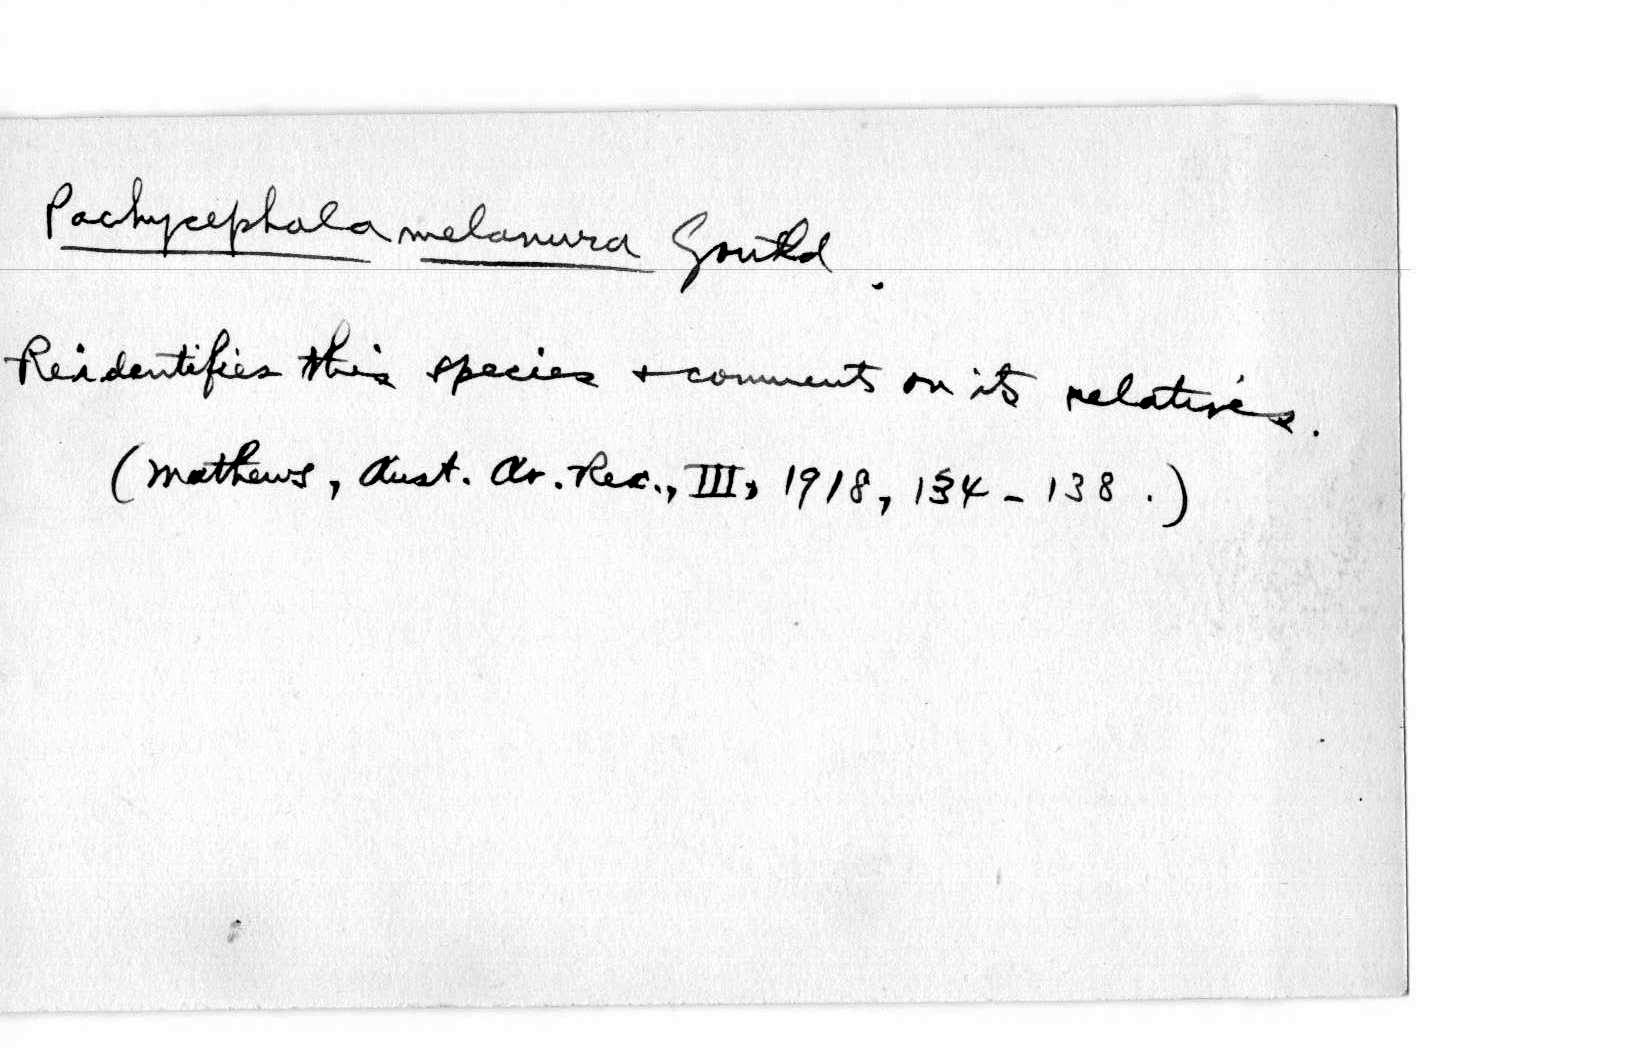 Pachycephala melanura Gould.
Reidentifies this species + comments on its relatives.
(Mathews, Aust. Av. Rec., III, 1918, 134-138.)